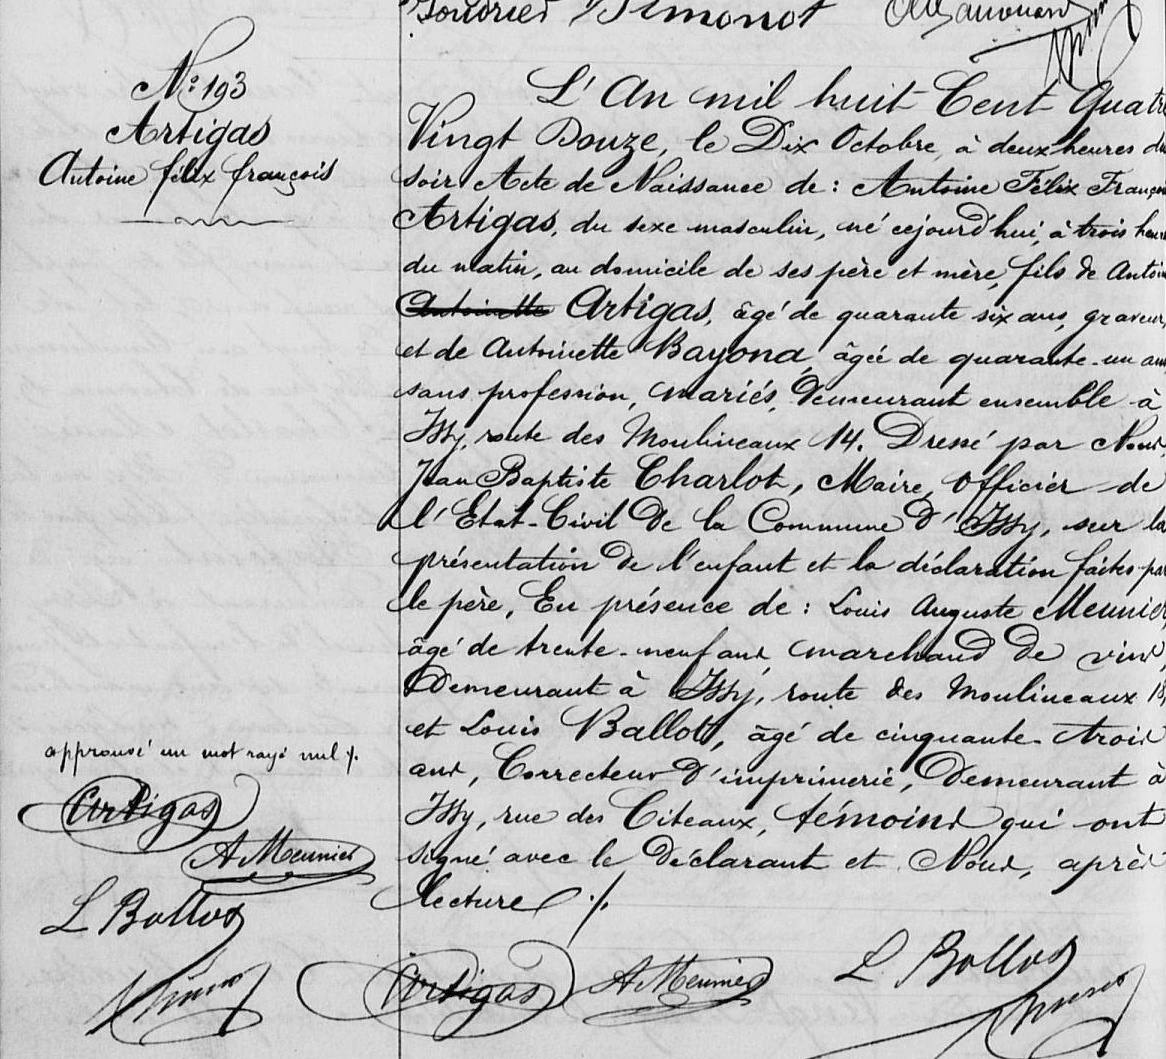 Simonot
N° 193
Artigas
Antoine félix françois
L'An mil huit Cent Quatre
Vingt Douze, le Dix Octobre, à deux heures du
soir Acte de Naissance de : Antoine Félix François
Artigas, du sexe masculin, né cejourd'hui, à trois heures
du matin, au domicile de ses père et mère, fils de Antoine
Antoinette Artigas, âgé de quarante six ans, graveur,
et de Antoinette Bayona, âgée de quarante-un ans
sans profession, mariés, demeurant ensemble à
Issy, route des Moulineaux 14. Dressé par Nous,
Jean Baptiste Charlot, Maire, Officier de
l'Etat-Civil de la Commune d'Issy, sur la
présentation de l'enfant et la déclaration faites par
le père, En présence de : Louis Auguste Meunier,
âgé de trente-neuf ans, marchand de vins,
Demeurant à Issy, route des Moulineaux 18,
et Louis Ballot, âgé de cinquante-trois
ans, Correcteur d'imprimerie, Demeurant à
Issy, rue des Citeaux, témoins qui ont
signé avec le déclarant et Nous, après
lecture ./.
approuvé un mot rayé nul ./.
Artigas
A Meunier
L Ballot
Artigas A Meunier L Ballot